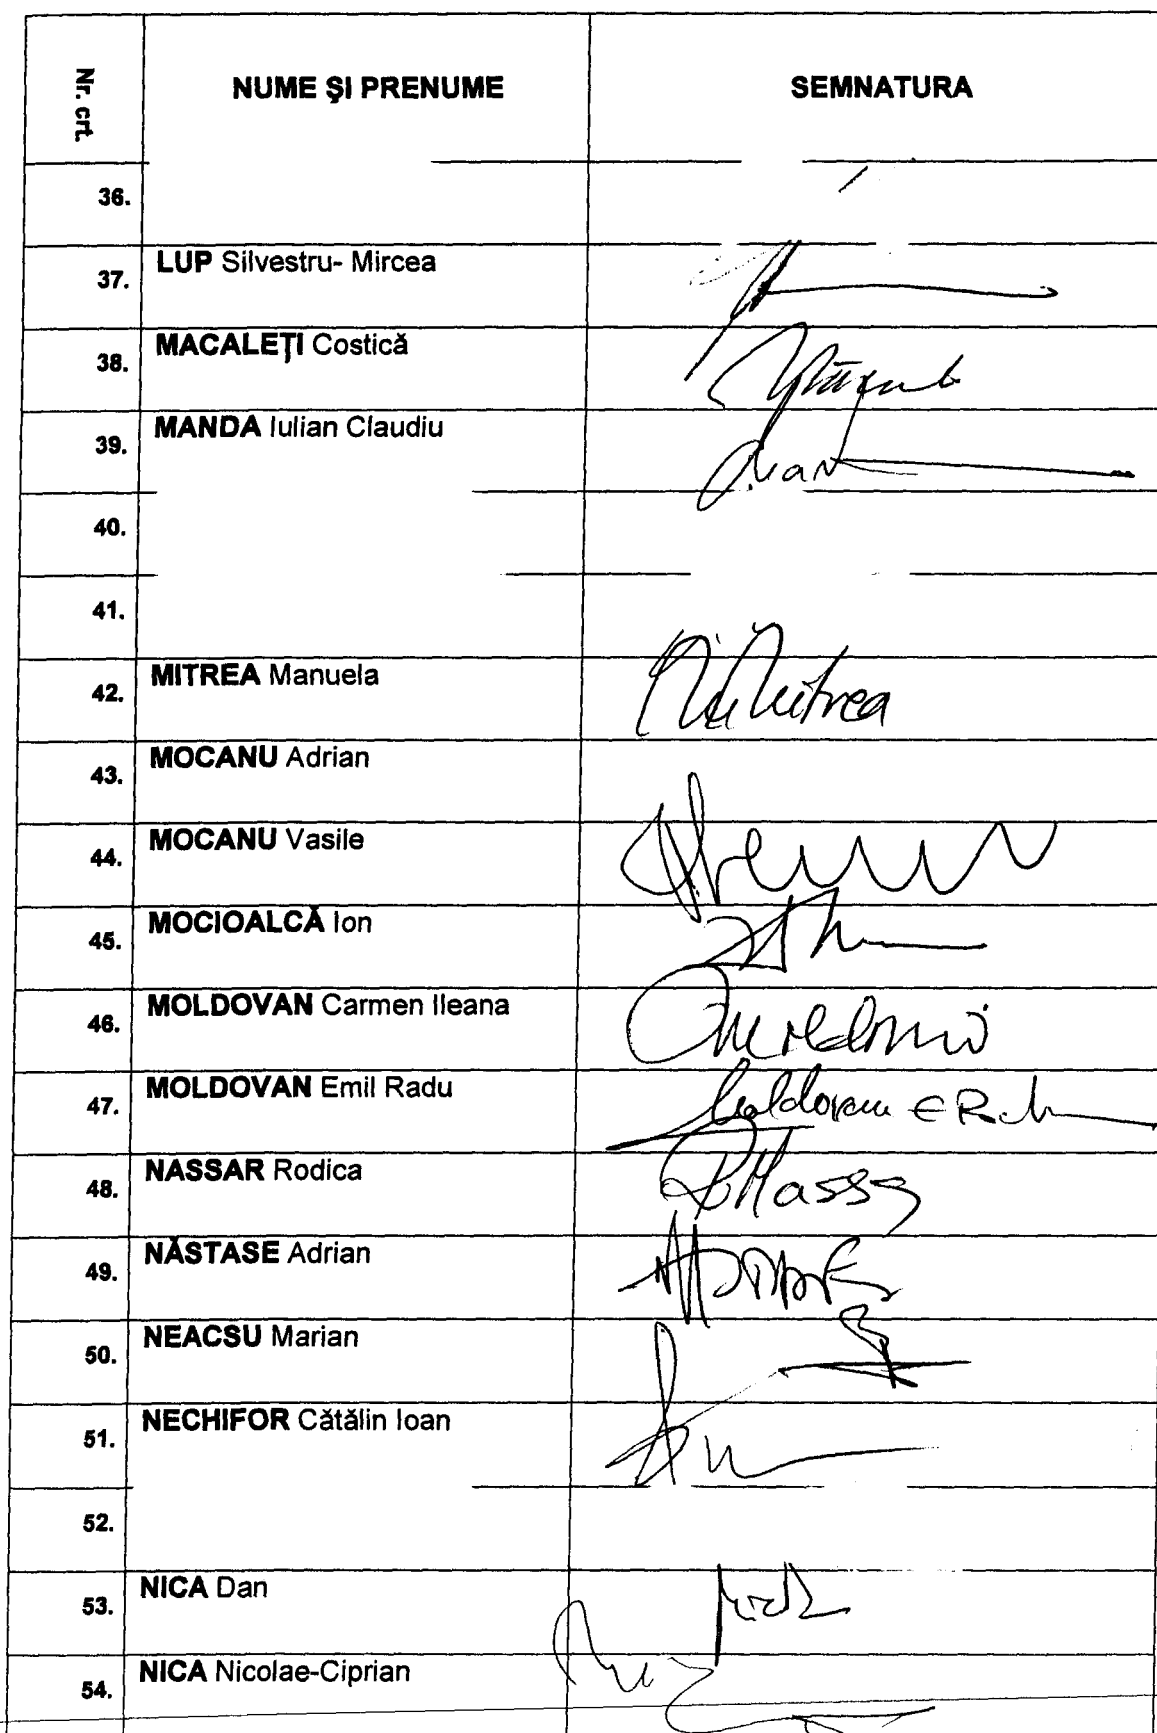 Nr. crt. NUME ŞI PRENUME SEMNATURA
36.
37. LUP Silvestru- Mircea
38. MACALEŢI Costică
39. MANDA Iulian Claudiu
40.
41.
42. MITREA Manuela Mitrea
43. MOCANU Adrian
44. MOCANU Vasile
45. MOCIOALCĂ Ion
46. MOLDOVAN Carmen Ileana
47. MOLDOVAN Emil Radu Moldovan E R
48. NASSAR Rodica
49. NĂSTASE Adrian
50. NEACSU Marian
51. NECHIFOR Cătălin Ioan
52.
53. NICA Dan
54. NICA Nicolae-Ciprian